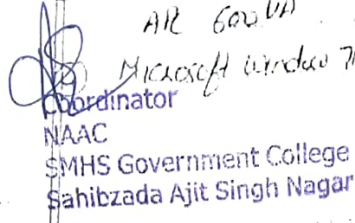 AR 600 VA
Microsoft Window 7
Coordinator
NAAC
SMHS Government College
Sahibzada Ajit Singh Nagar